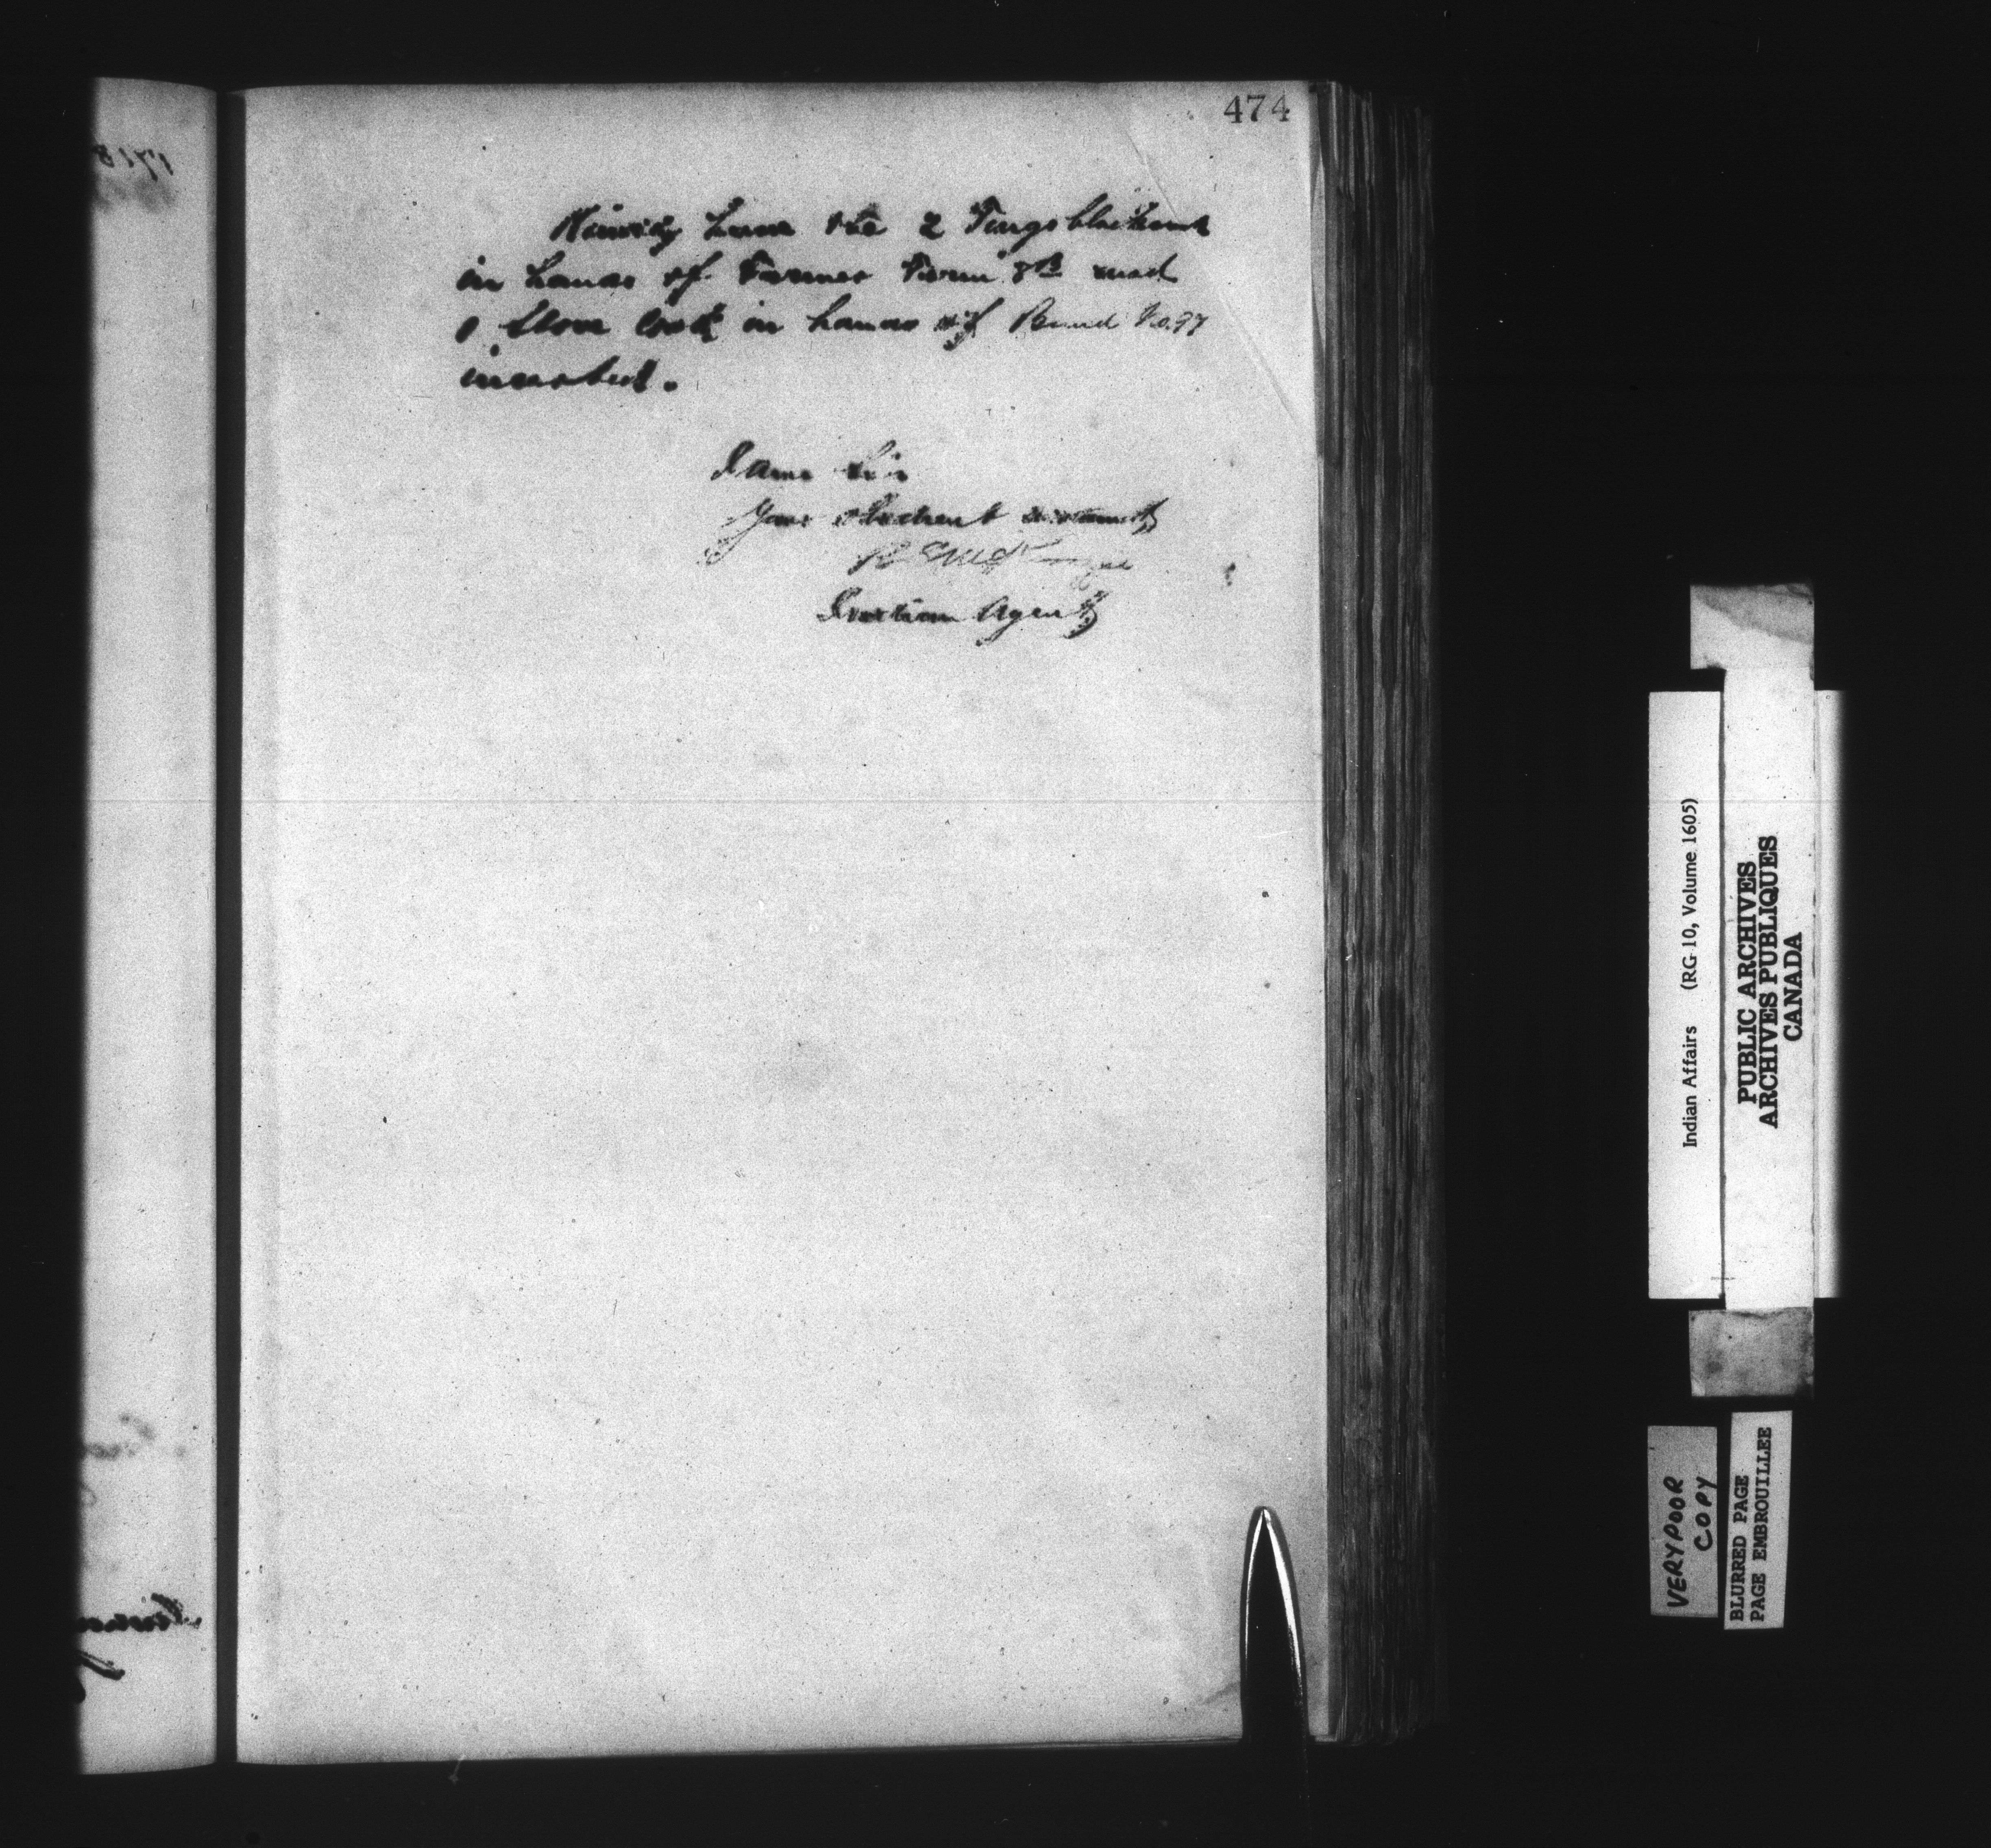 474
Kindly have the 2 Tongs blacksmith
in hands of Farmer Farm 8B and
1 Stove Cook in hands of Band No. 97
inserted.
I am Sir
Your obedient servant
Indian Agent
Indian Affairs (RG 10, Volume 1605)
PUBLIC ARCHIVES
ARCHIVES PUBLIQUES
CANADA
VERY POOR
COPY
BLURRED PAGE
PAGE EMBROUILLEE